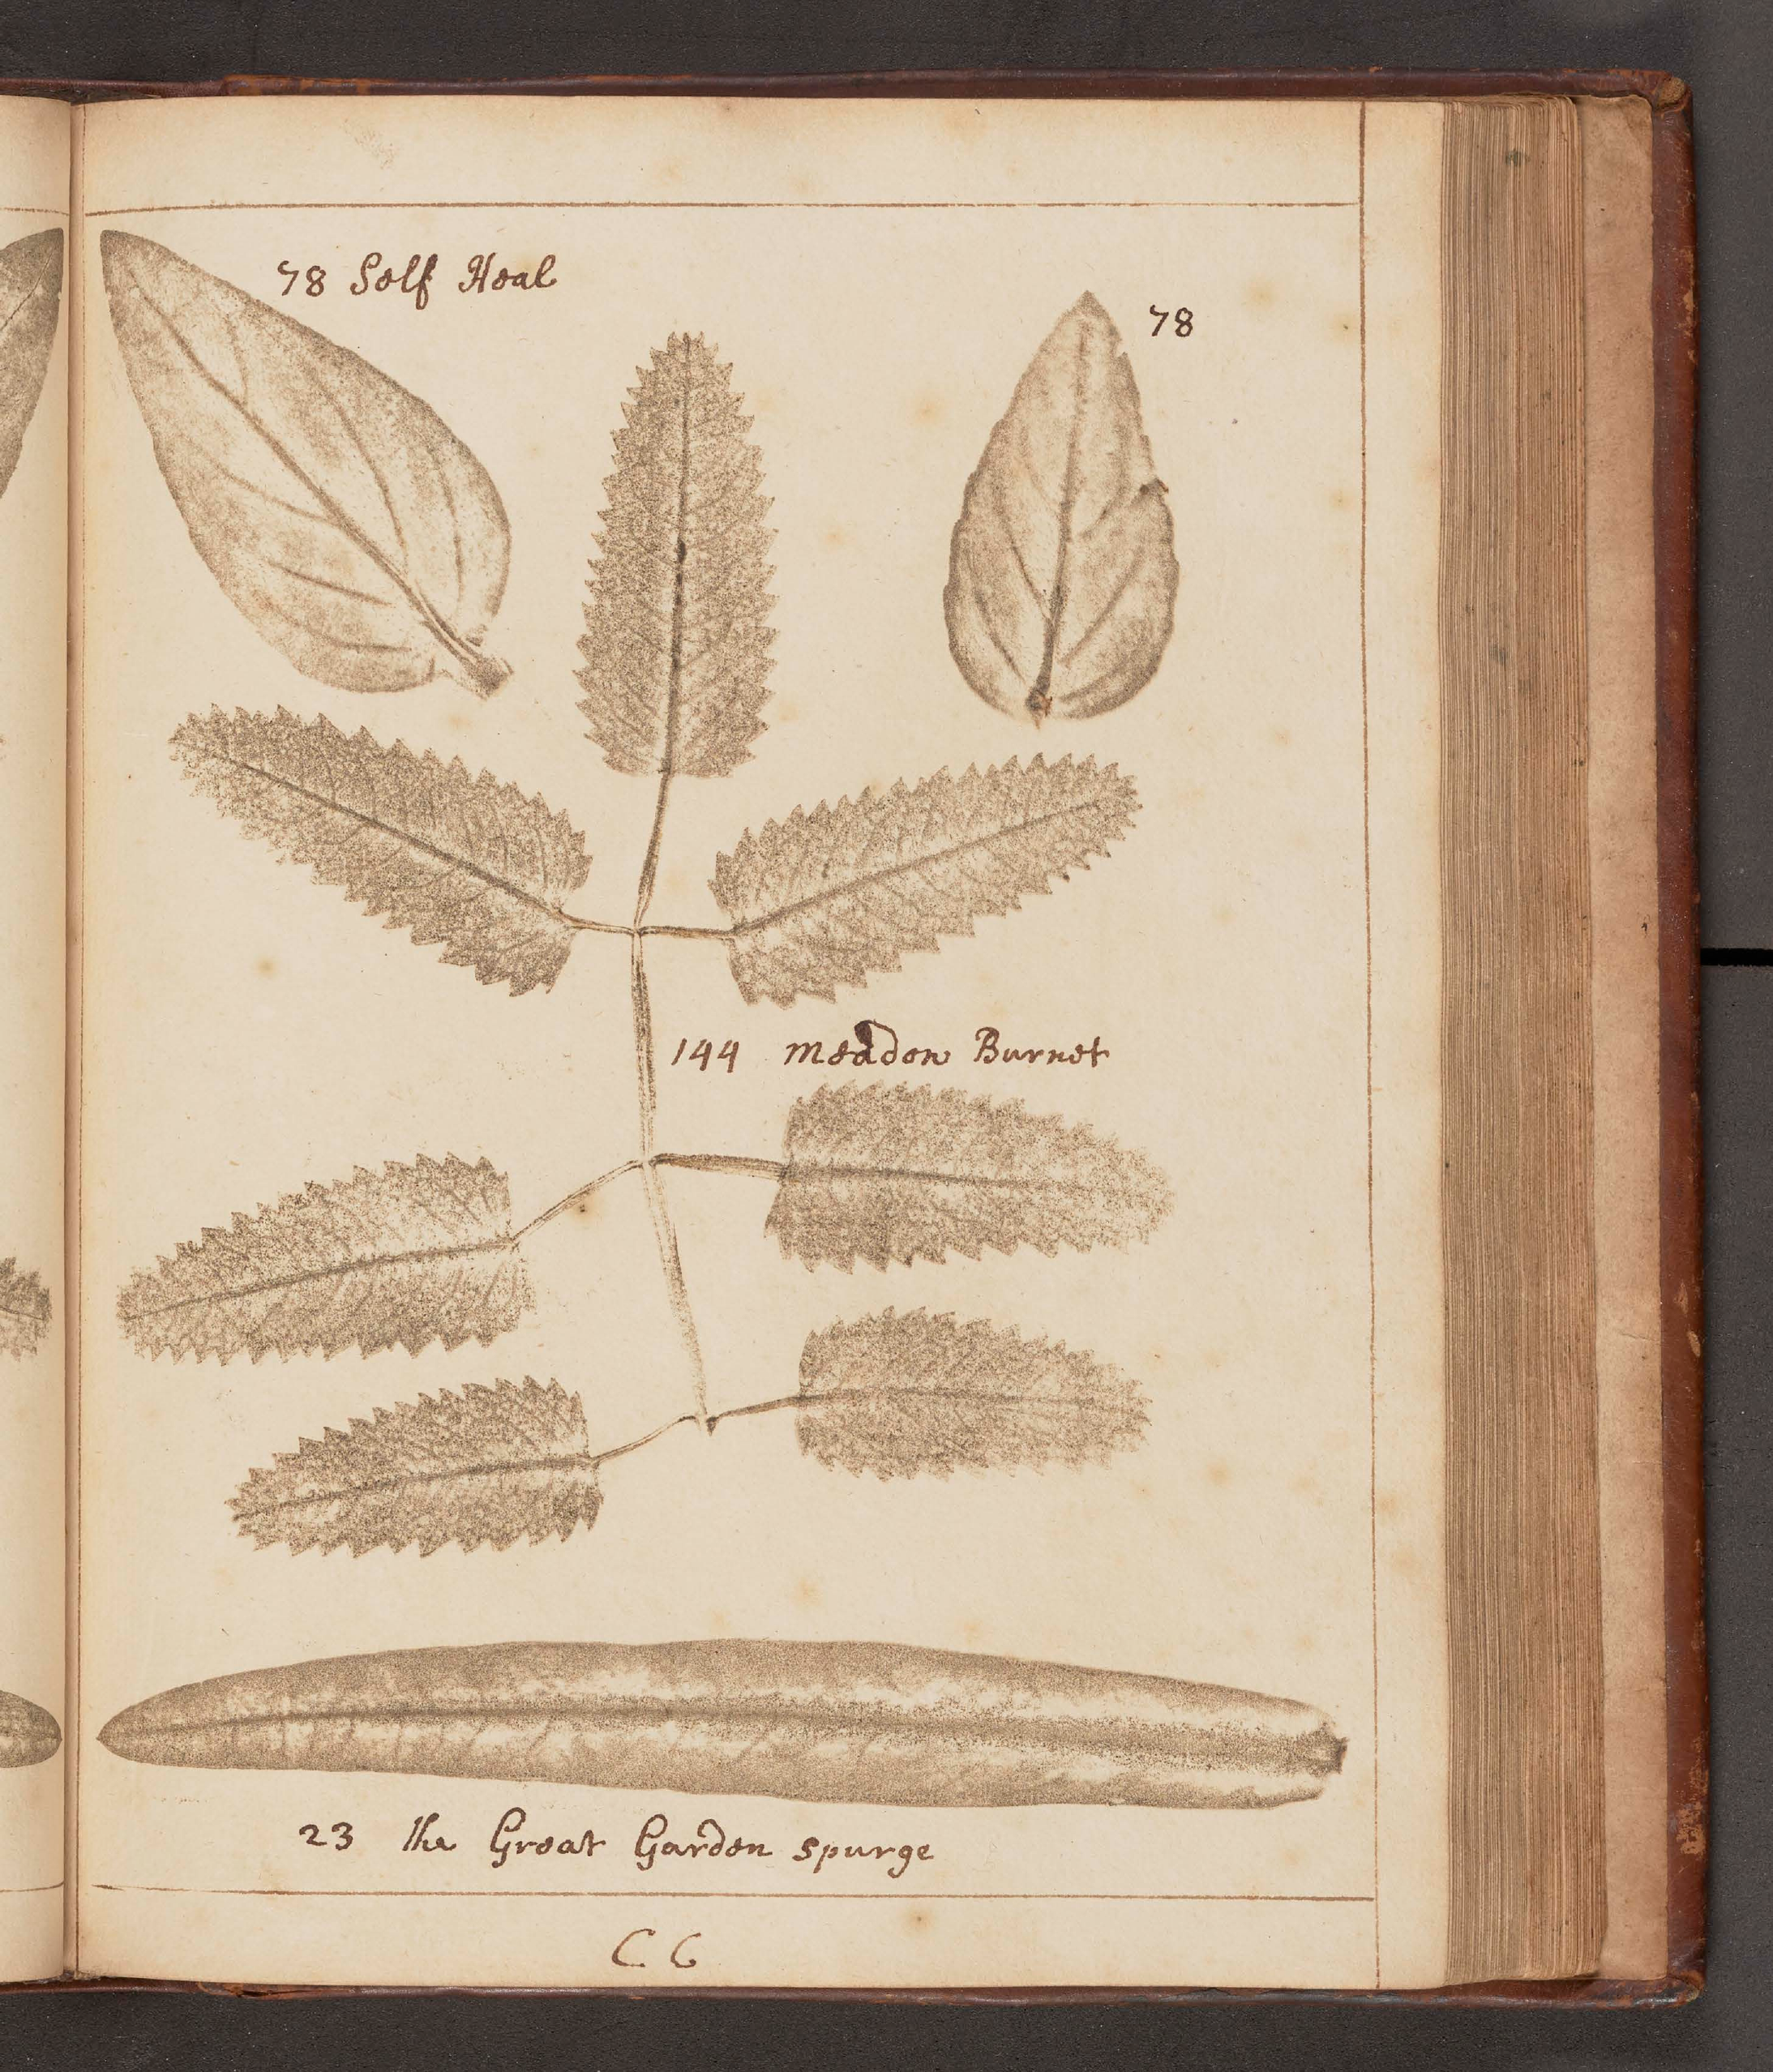 78 Self Heal
78
144 Meadow Burnet
23 the Great Garden spurge
C 6